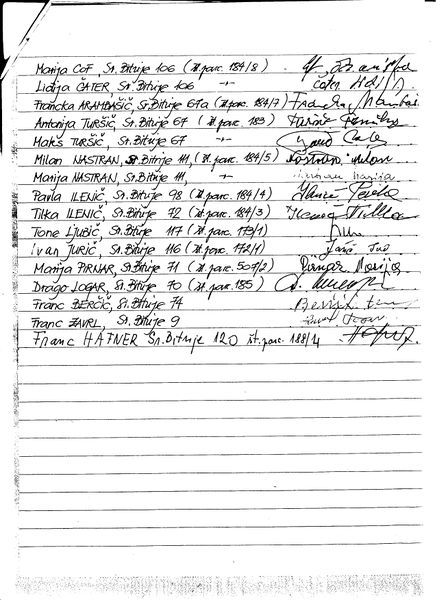 Marija COF, Sr. Bitnje 106 (št. parc. 184/8)
Lidija ČATER, Sr. Bitnje 106 -"-
Francka ARAMBAŠIČ, Sr. Bitnje 67a (št. parc. 184/7)
Antonija TURŠIČ, Sr. Bitnje 67 (št. parc. 183)
Maks TURŠIČ, Sr. Bitnje 67 -"-
Milan NASTRAN, Sr. Bitnje 111, (št. parc. 184/5) Nastran Milan
Marija NASTRAN, Sr. Bitnje 111, -"- Nastran Marija
Pavla ILENIČ, Sr. Bitnje 98 (št. parc. 184/4)
Tilka ILENIČ, Sr. Bitnje 72 (št. parc. 184/3)
Tone LJUBIČ, Sr. Bitnje 117 (št. parc. 179/1)
Ivan JURIČ, Sr. Bitnje 116 (št. parc. 172/1)
Marija PIRNAR, Sr. Bitnje 71 (št. parc. 507/2) Pirnar Marija
Drago LOGAR, Sr. Bitnje 70 (št. parc. 185)
Franc BERČIČ, Sr. Bitnje 74
Franc ZAVRL, Sr. Bitnje 9
Franc HAFNER Sr. Bitnje 120 št. parc. 188/4